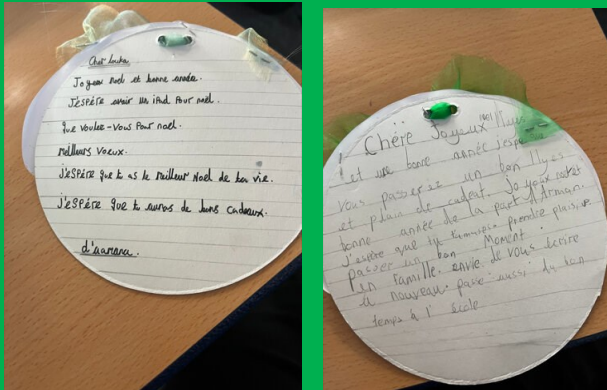 Cher Louka
Joyeux Noël et bonne année.
J'ESPÈRE avoir un iPad Pour noël.
que voulez-vous Pour noël.
meilleurs voeux.
j'ESPÈRE que tu as le meilleur Noël de ta vie.
j'ESPÈRE que tu auras de bons cadeaux.
d'
Chère Joyeux
est une bonne année j'espère
vous passerez un bon
et plain de cadeat. Joyeux
bonne année de la part d'Arman.
J'espère que tu prendre plaisir,
passer un bon Moment.
en famille. envie de vous écrire
à nouveau. passe aussi du bon
temps à l'école